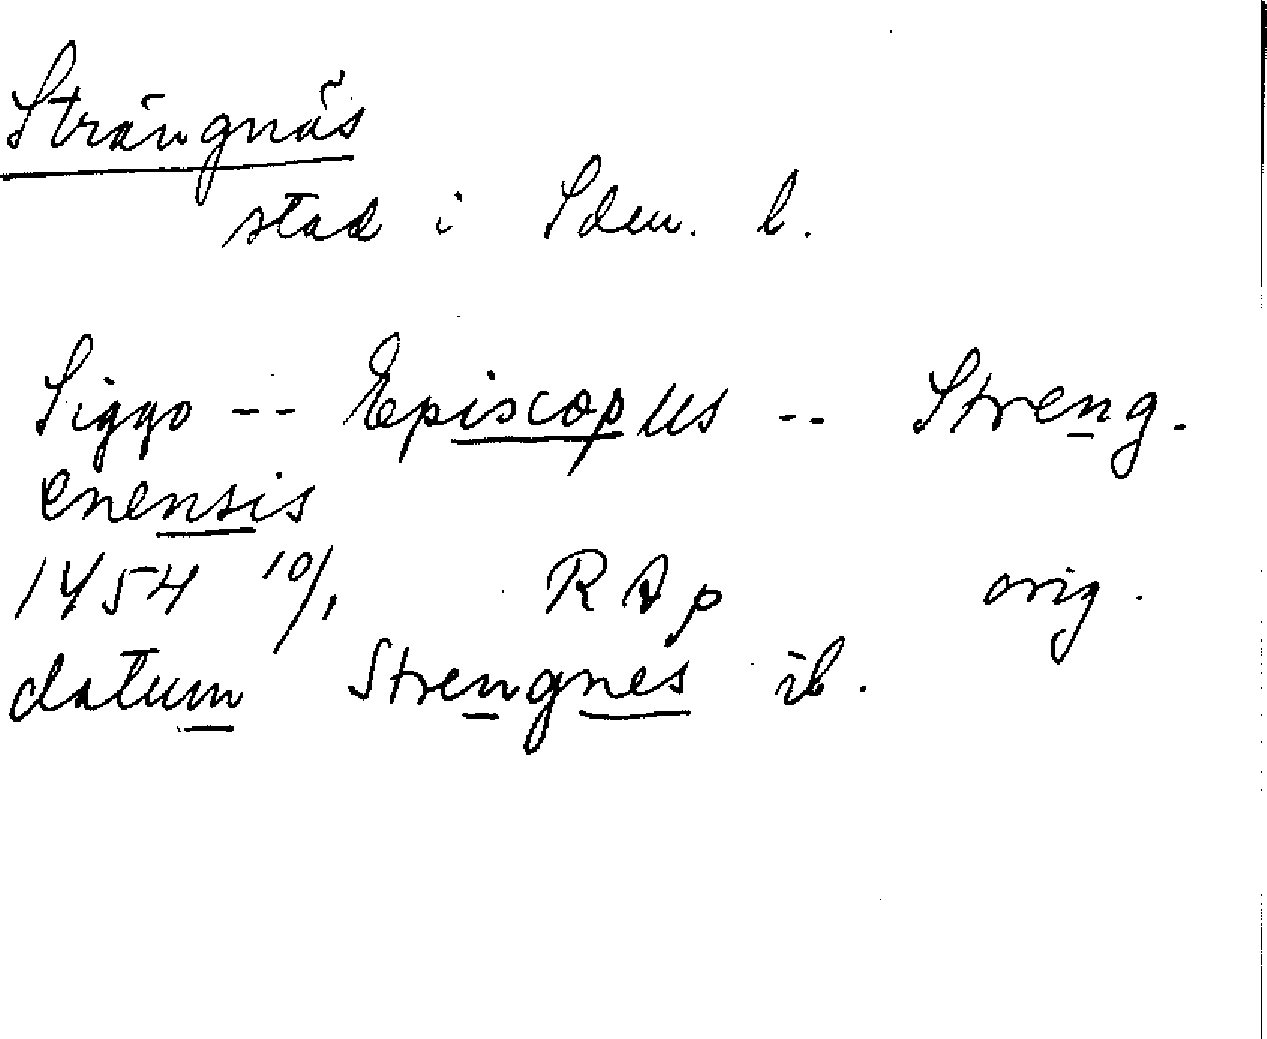 Strängnäs
stad i Sdm. l.
Siggo -- Episcopus -- Streng-
enensis
1454 10/1 RAp orig.
datum Strengnes ib.